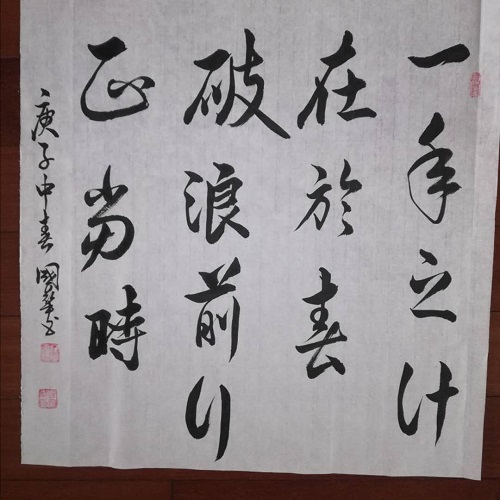 一年之计
在於春
破浪前行
正当時
庚子中春國華书